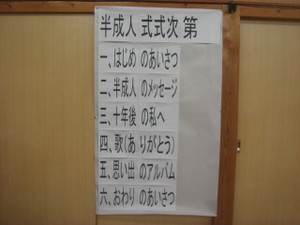 半成人 式式次 第
一、はじめ のあいさつ
二、半成人 のメッセージ
三、十年後 の私へ
四、歌(あ りがとう)
五、思い出 のアルバム
六、おわり のあいさつ